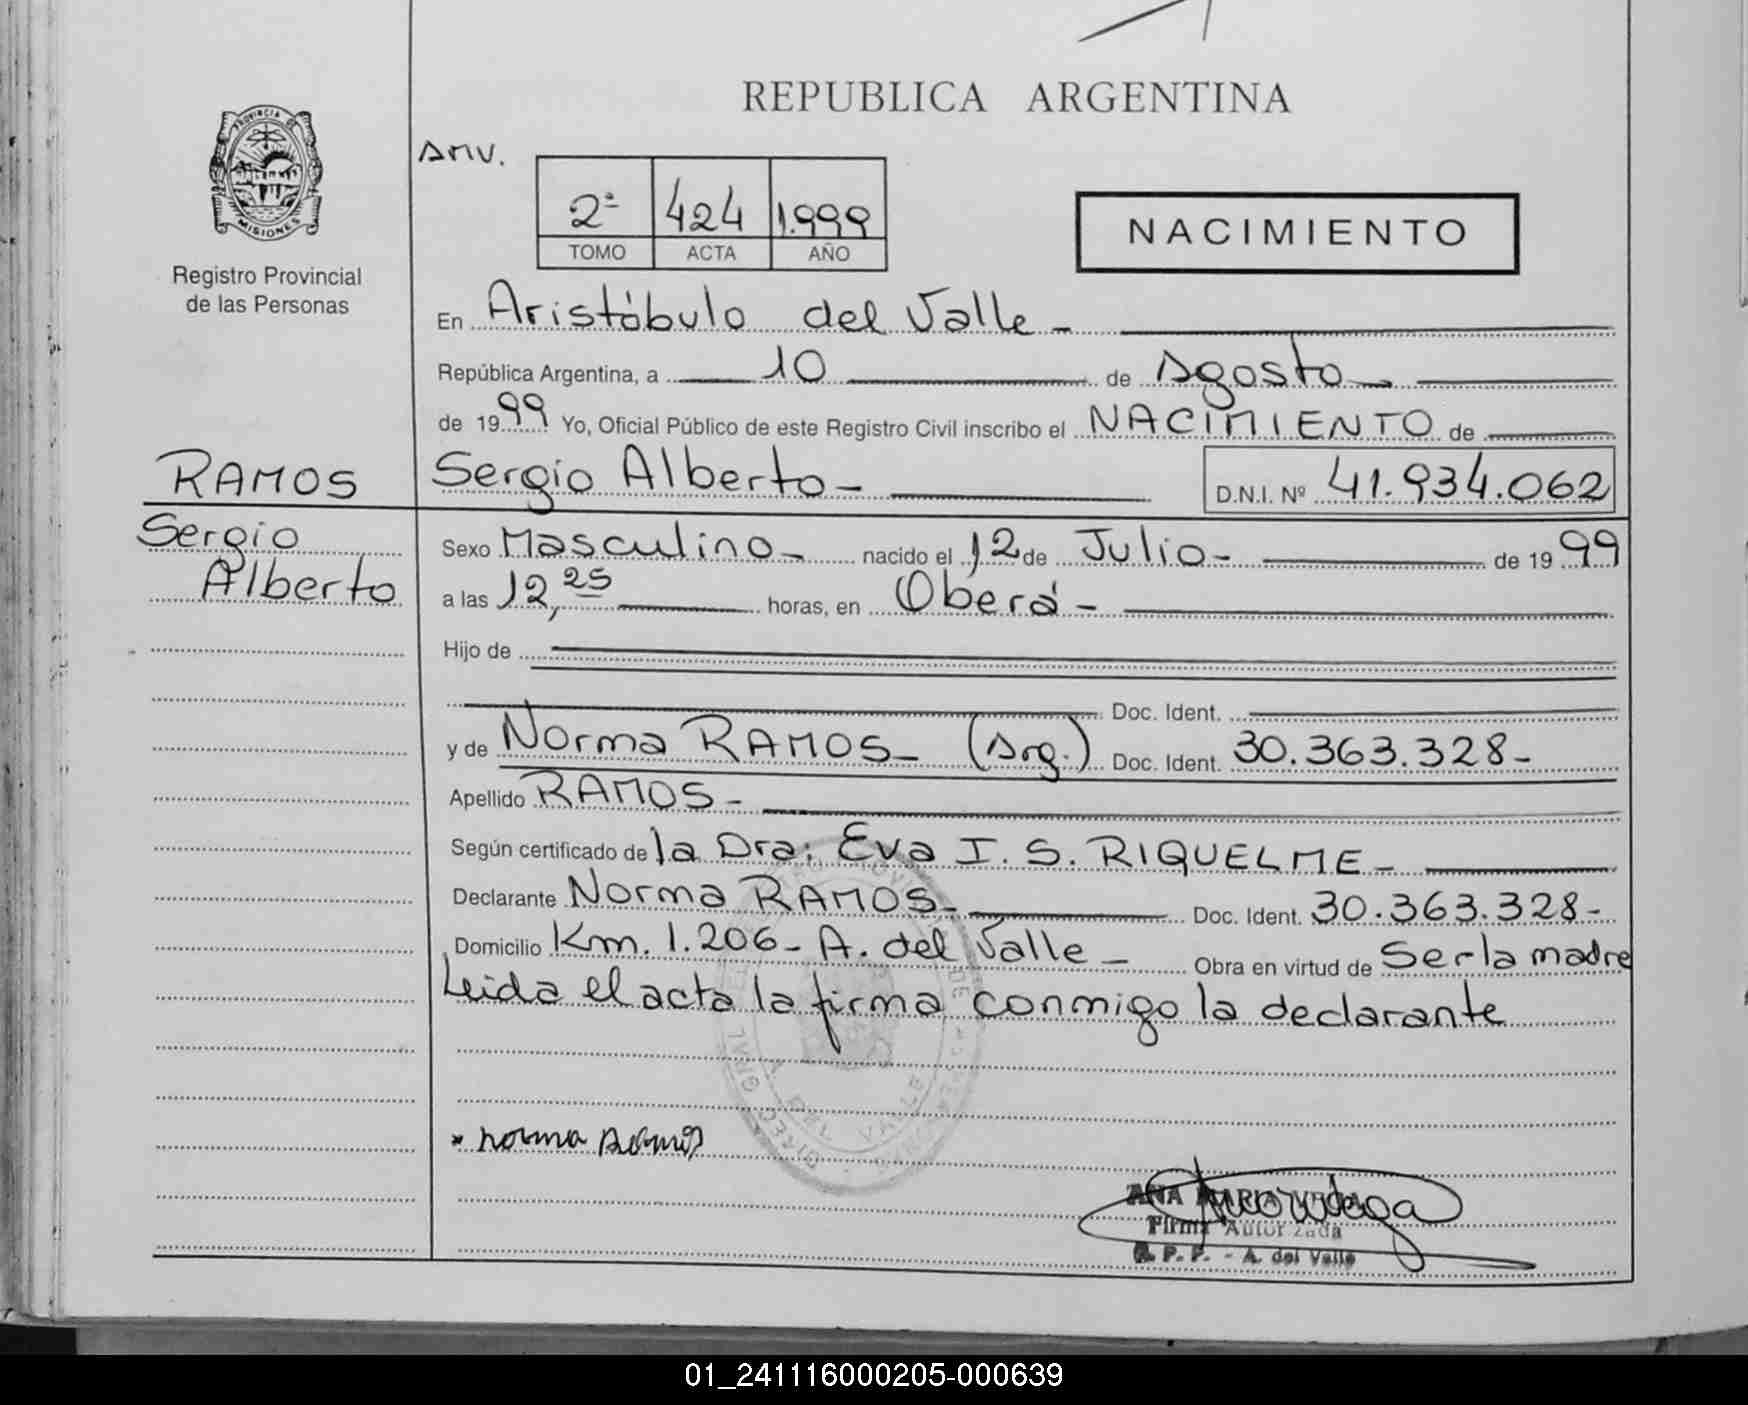 REPUBLICA ARGENTINA
PROVINCIA DE MISIONES
Registro Provincial
de las Personas
Anv.
2ª 424 1.999
TOMO ACTA AÑO
NACIMIENTO
En Aristóbulo del Valle -
República Argentina, a 10 de Agosto -
de 1999 Yo, Oficial Público de este Registro Civil inscribo el NACIMIENTO de
RAMOS
Sergio
Alberto
Sergio Alberto - D.N.I. Nº 41.934.062
Sexo Masculino - nacido el 12 de Julio - de 1999
a las 12,25 horas, en Oberá -
Hijo de
Doc. Ident.
y de Norma RAMOS - (Arg.) Doc. Ident. 30.363.328 -
Apellido RAMOS -
Según certificado de la Dra. Eva I. S. RIQUELME -
Declarante Norma RAMOS - Doc. Ident. 30.363.328 -
Domicilio Km. 1.206 - A. del Valle - Obra en virtud de Ser la madre
Leida el acta la firma conmigo la declarante
Norma Ramos
ANA MARIA
Firma Autorizada
R. P. P. - A. del Valle
01_241116000205-000639